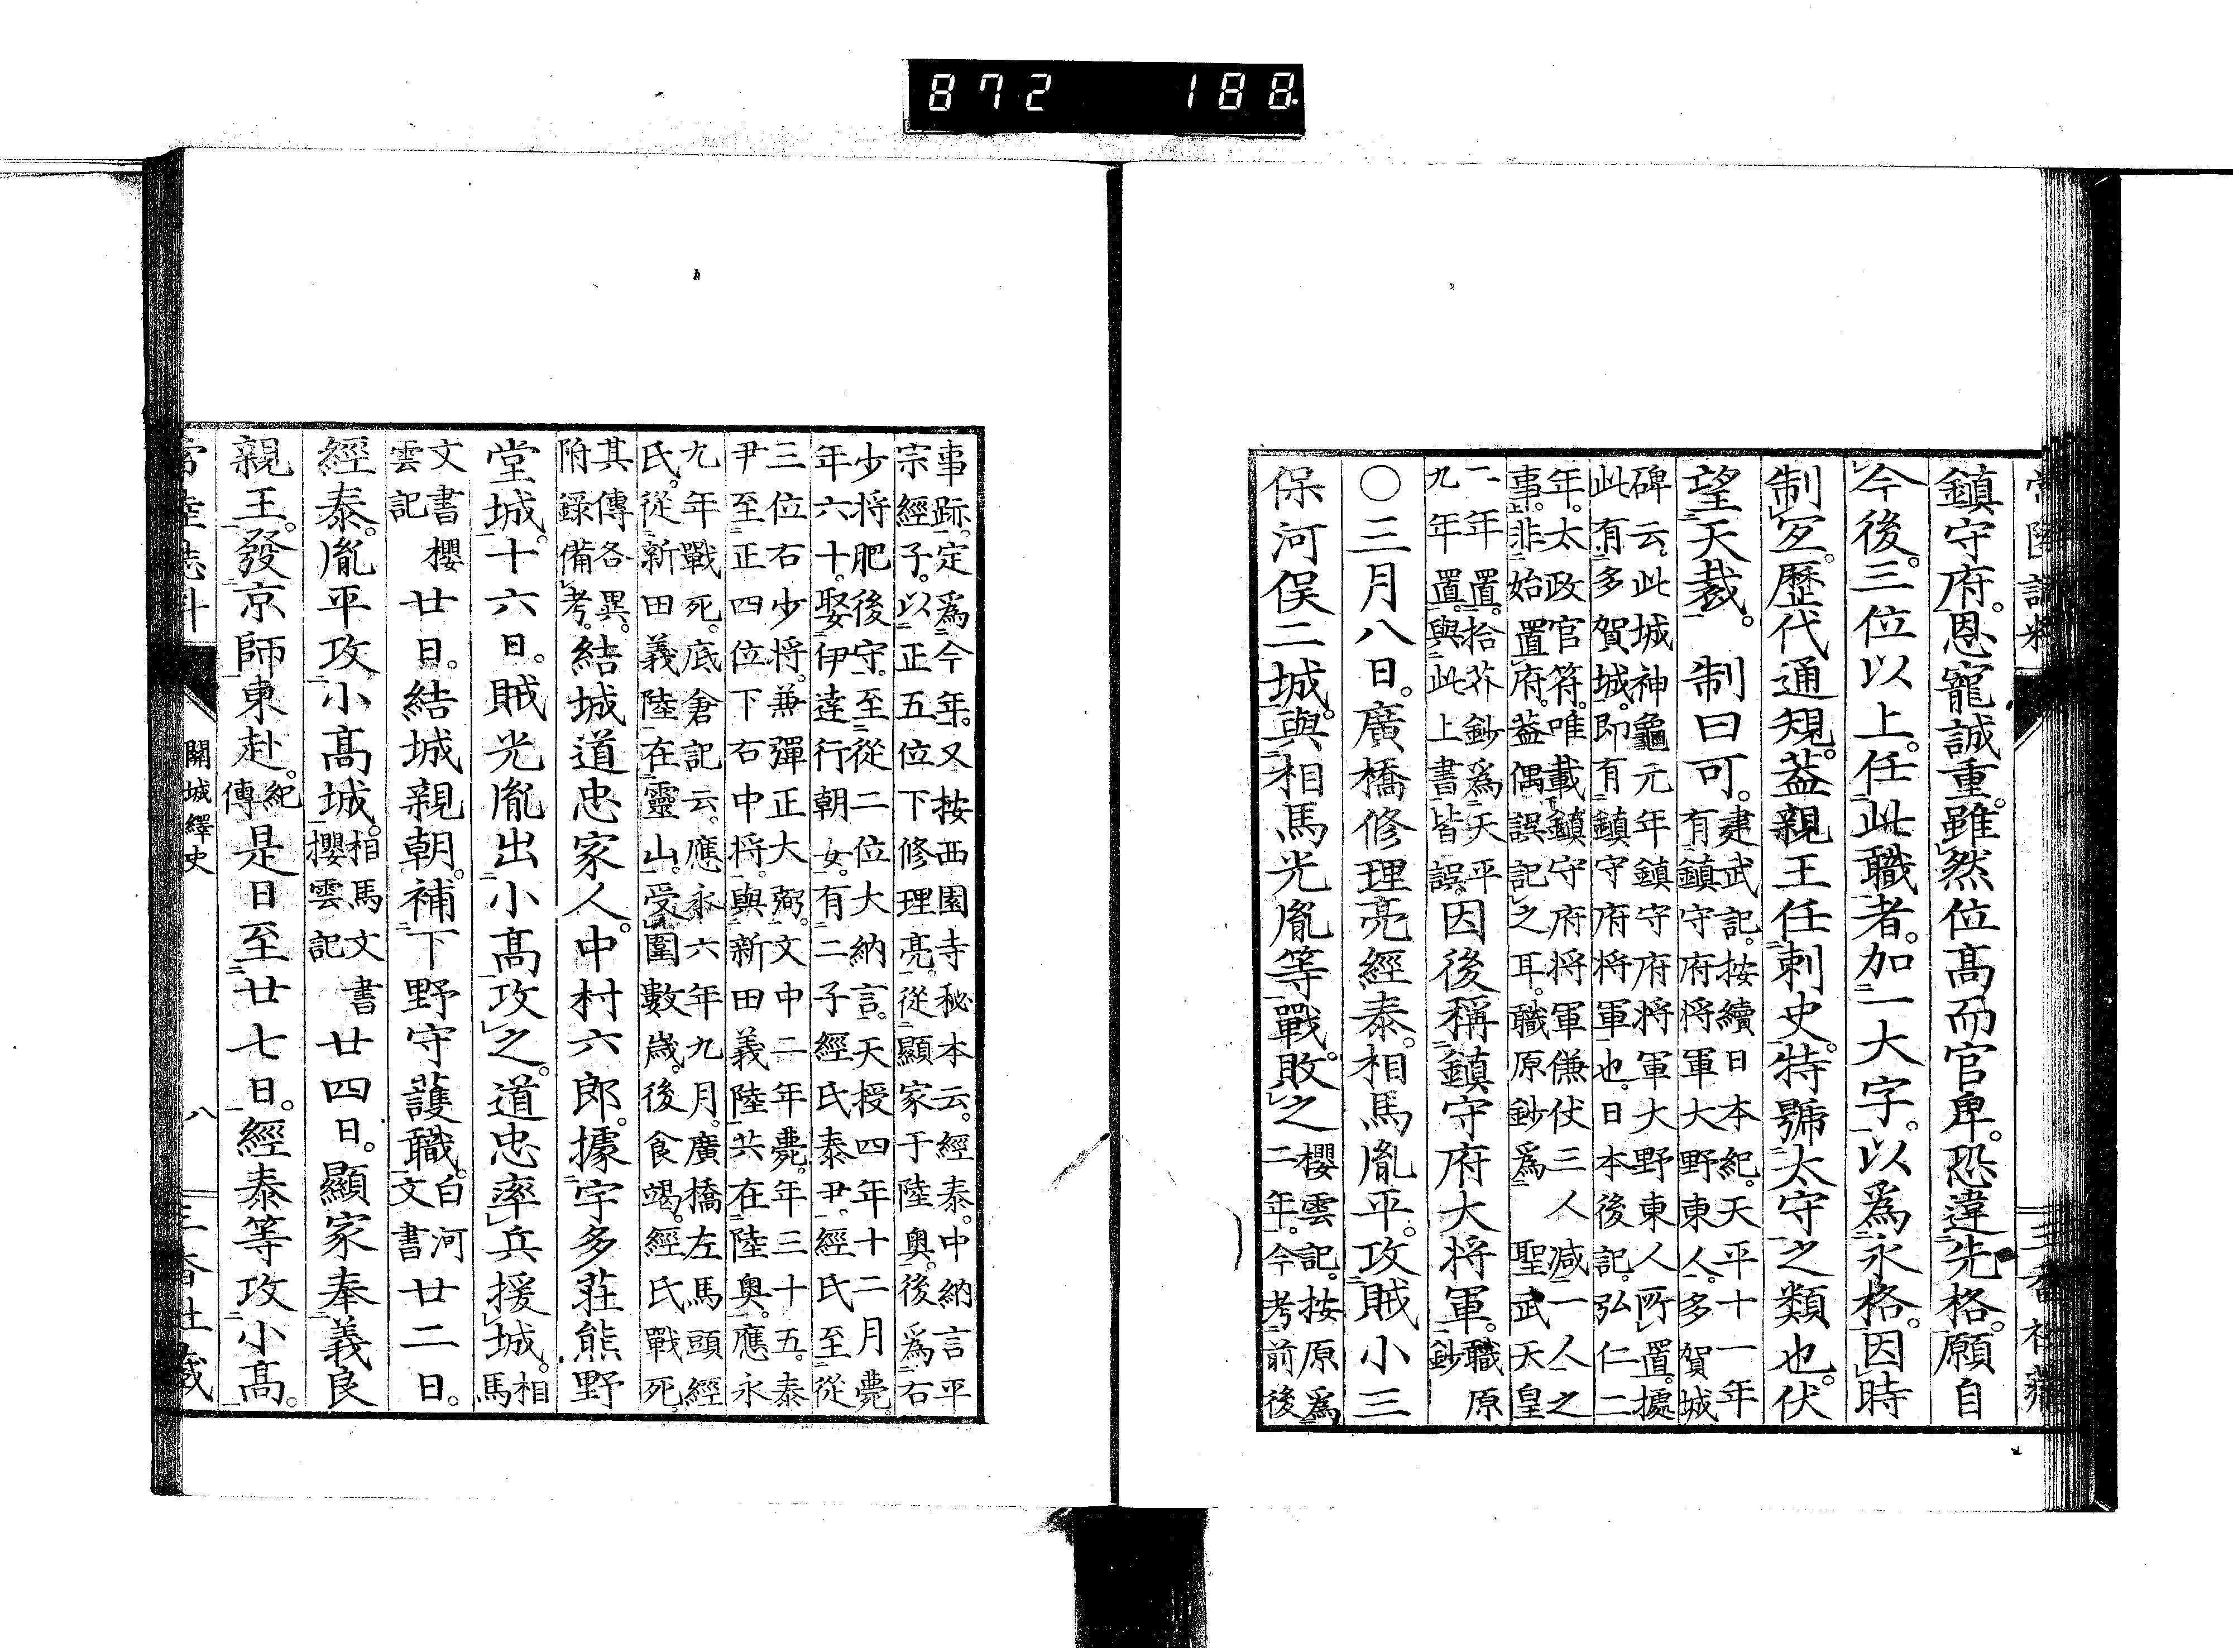 872 188
鎮守府。恩寵誠重。雖然位髙而官卑。恐違先格。願自
今後。三位以上。任此職者。加一大字。以爲永格。因時
制冝。歷代通規。葢親王任刺史。特號太守之類也。伏
望天裁。 制曰可。建武記。按續日本紀。天平十一年
有鎮守府将軍大野東人。多賀城
碑云。此城神龜元年鎮守府将軍大野東人所置。據
此有多賀城。即有鎮守府将軍也。日本後記。弘仁二
年。太政官符。唯載鎮守府将軍傔伏三人减一人之
事。非始置府。葢偶誤記之耳。職原鈔爲 聖武天皇
二年置。拾芥鈔爲天平
九年置。與此上書皆誤。因後稱鎮守府大将軍。職原
鈔
〇三月八日。廣橋修理亮經泰。相馬胤平。攻賊小三
保河俣二城。與相馬光胤等戰。敗之櫻雲記。按原爲
二年。今考前後
事跡。定爲今年。又按西園寺秘本云。經泰。中納言平
宗經子。以正五位下修理亮。從顯家于陸奥。後爲右
少将肥後守。至從二位大納言。天授四年十二月薨。
年六十。娶伊達行朝女。有二子經氏泰尹。經氏至從
三位右少将。兼彈正大弼。文中二年薨。年三十五。泰
尹至正四位下右中将。與新田義陸共在陸奥。應永
九年戰死。底倉記云。應永六年九月。廣橋左馬頭經
氏。從新田義陸在靈山。受圍數歲。後食竭。經氏戰死。
其傳各異。
附録備考。結城道忠家人。中村六郎。據宇多莊熊野
堂城。十六日。賊光胤出小髙攻之。道忠率兵援城。相
馬
文書櫻
雲記 廿日。結城親朝。補下野守護職。白河
文書廿二日。
經泰。胤平攻小髙城。相馬文書
櫻雲記 廿四日。顯家奉義良
親王。發京師東赴。紀
傳是日至廿七日。經泰等攻小髙。
關城繹史 八